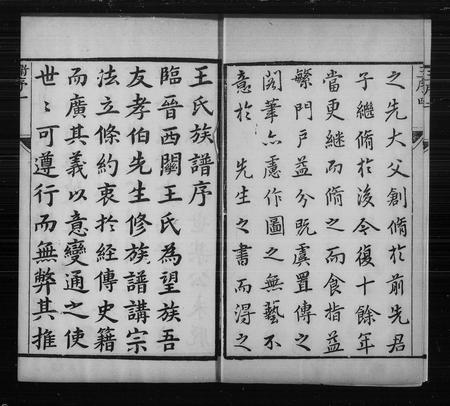 之先大父創脩於前先君
子繼脩於後今復十餘年
當更繼而脩之而食指益
繁門戶益分既虞置傳之
閣筆亦慮作圖之無藝不
意於先生之書而得之
王氏族譜序
臨晉西關王氏為望族吾
友孝伯先生修族譜講宗
法立條約衷於經傳史籍
而廣其義以意變通之使
世〻可遵行而無弊其推